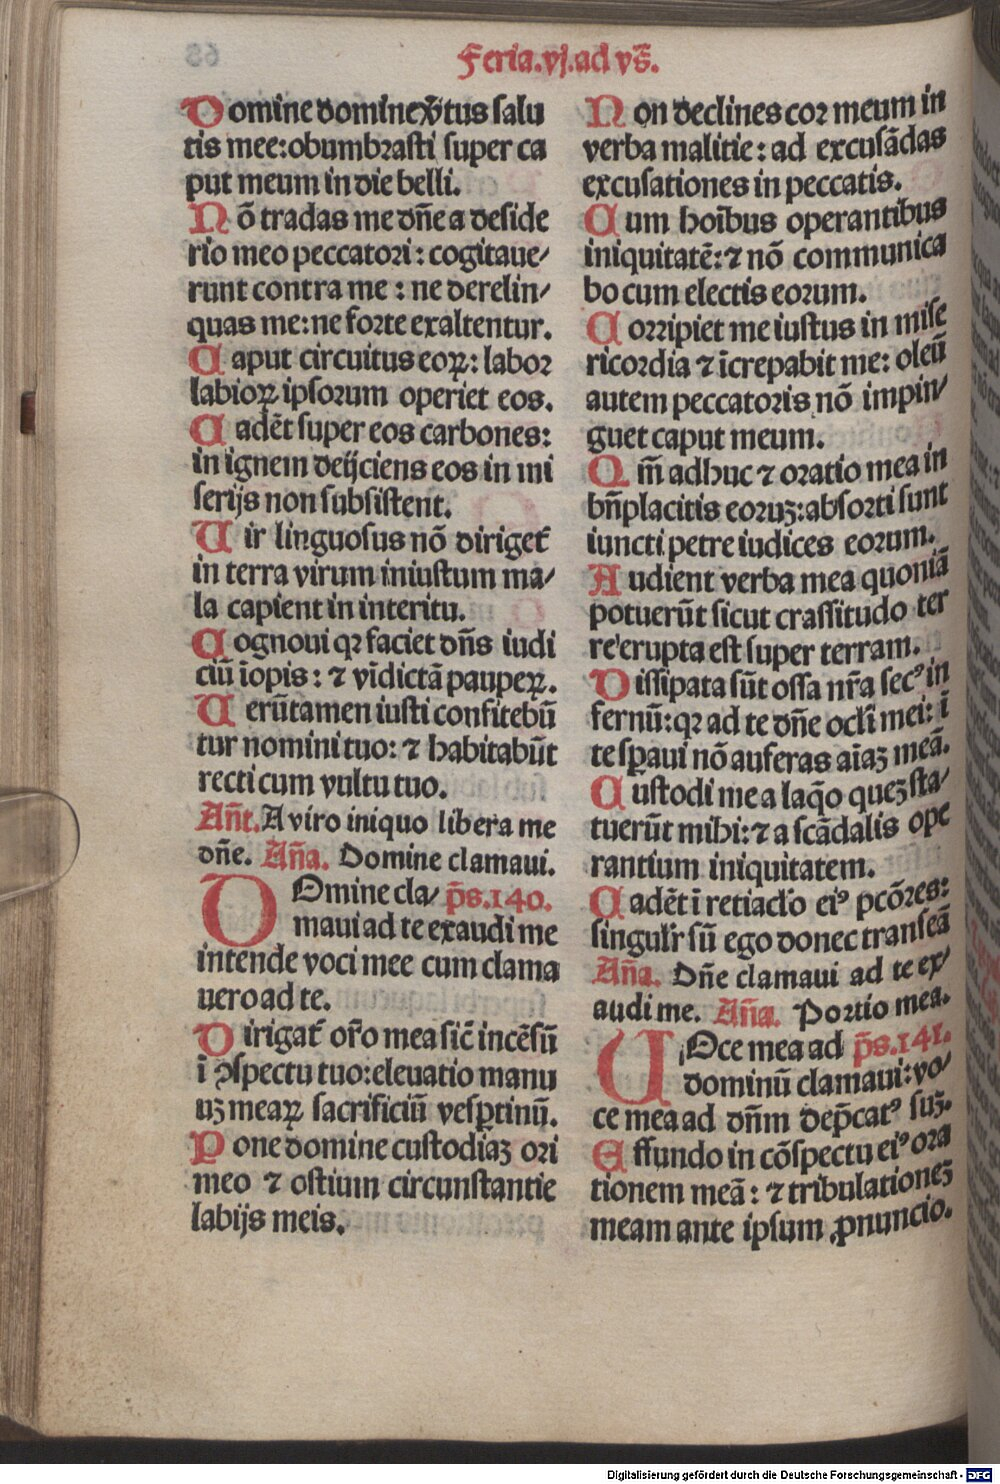 Feria.vj.ad vs̃.
Domine domine v̓tus salu
tis mee:obumbrasti super ca
put meum in die belli.
Nõ tradas me dñe a deside
rio meo peccatori: cogitaue/
runt contra me : ne derelin/
quas me:ne forte exaltentur.
Caput circuitus eoꝝ: labor
labioꝝ ipsorum operiet eos.
Cadẽt super eos carbones:
in ignem deijciens eos in mi
serijs non subsistent.
Uir linguosus nõ diriget̃
in terra virum iniustum ma/
la capient in interitu.
Cognoui qꝛ faciet dñs iudi
ciũ ĩopis: ⁊ vĩdictã paupeꝝ.
Uerũtamen iusti confitebũ
tur nomini tuo: ⁊ habitabũt
recti cum vultu tuo.
Añt. A viro iniquo libera me
dñe. Aña. Domine clamaui.
DOmine cla/ p̃s.140.
maui ad te exaudi me
intende voci mee cum clama
uero ad te.
Dirigat̃ or̃o mea sic̃ incẽsũ
ĩ ꝯspectu tuo:eleuatio manu
uꝫ meaꝝ sacrificiũ vesꝑtinũ.
Pone domine custodiaꝫ ori
meo ⁊ ostium circunstantie
labijs meis.
Non declines cor meum in
verba malitie: ad excusãdas
excusationes in peccatis.
Cum hoĩbus operantibus
iniquitatẽ: ⁊ nõ communica
bo cum electis eorum.
Corripiet me iustus in mise
ricordia ⁊ ĩcrepabit me: oleũ
autem peccatoris nõ impin/
guet caput meum.
Qm̃ adhuc ⁊ oratio mea in
bñplacitis eoruꝫ:absorti sunt
iuncti petre iudices eorum.
Audient verba mea quoniã
potuerũt sicut crassitudo ter
re erupta est super terram.
Dissipata sũt ossa nr̃a secꝰ in
fernũ:qꝛ ad te dñe ocl̃i mei: ĩ
te sꝑaui nõ auferas aĩaꝫ meã.
Custodi me a laq̃o queꝫ sta/
tuerũt mihi: ⁊ a scãdalis ope
rantium iniquitatem.
Cadẽt ĩ retiacl̓o eiꝰ pcõres:
singul̓r sũ ego donec transeã
Aña. Dñe clamaui ad te ex/
audi me. Aña. Portio mea.
UOce mea ad p̃s.141.
dominũ clamaui:vo/
ce mea ad dñm dep̃catꝰ suꝫ.
Effundo in cõspectu eiꝰ ora
tionem meã: ⁊ tribulationeꝫ
meam ante ipsum ꝓnuncio.
Digitalisierung gefördert durch die Deutsche Forschungsgemeinschaft - DFG